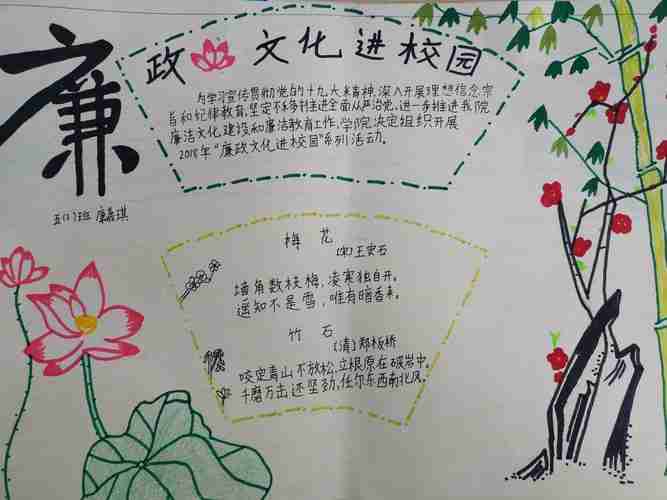 廉
政 文化进校园
为学习宣传贯彻党的十九大精神,深入开展理想信念宗
旨和纪律教育,坚定不移推进全面从严治党,进一步推进我院
廉洁文化建设和廉洁教育工作,学院决定组织开展
2018年“廉政文化进校园”系列活动。
五(1)班 廖嘉琪
梅 花
(宋)王安石
墙角数枝梅,凌寒独自开。
遥知不是雪,唯有暗香来。
竹 石
(清)郑板桥
咬定青山不放松,立根原在破岩中。
千磨万击还坚劲,任尔东西南北风。